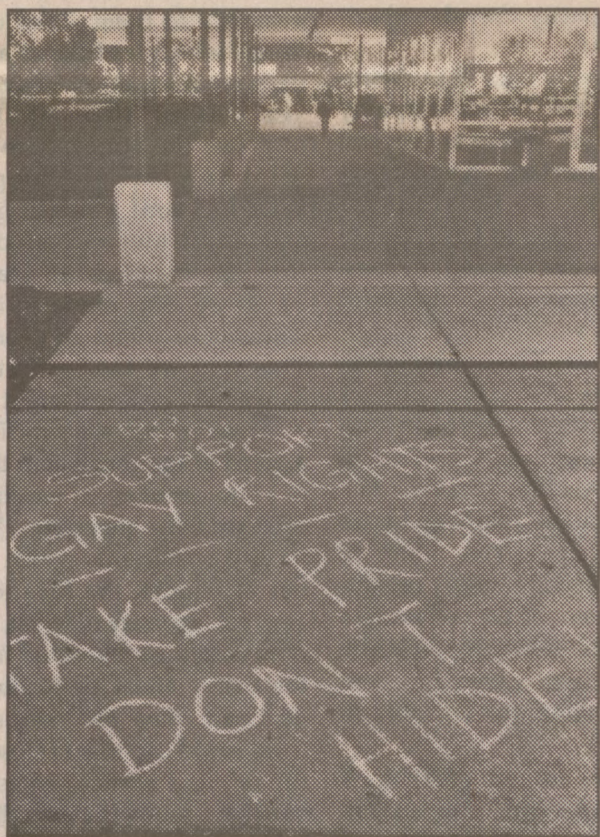 DO NOT
SUPPORT
GAY RIGHTS
TAKE PRIDE
DON'T
HIDE!